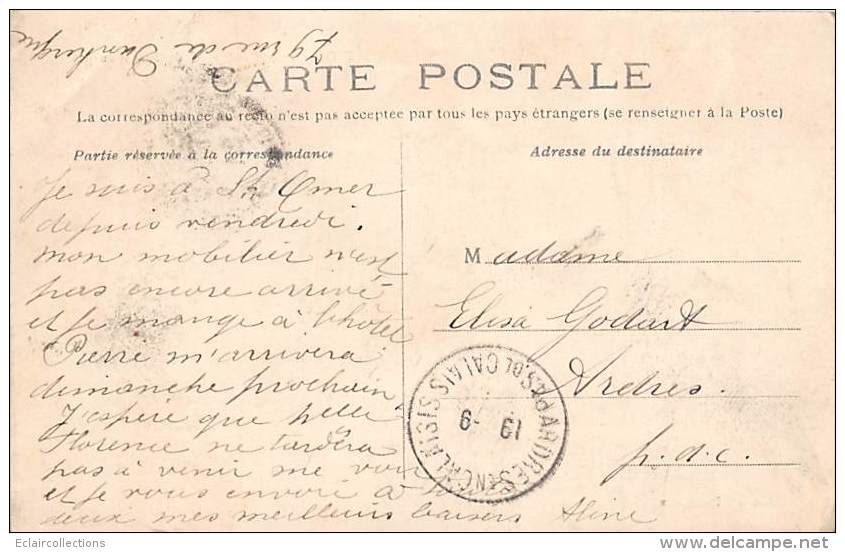 79 rue de Dunkerque
CARTE POSTALE
La correspondance au recto n'est pas acceptée par tous les pays étrangers (se renseigner à la Poste)
Partie réservée à la correspondance
Adresse du destinataire
Je suis à St Omer
depuis vendredi.
mon mobilier n'est
pas encore arrivé
et je mange à l'hôtel
Pierre m'arrivera
dimanche prochain
J'espère que
Florence ne tardera
pas à venir me voir
et je vous envoie à
deux mes meilleurs baisers Aline
Maddame
Elisa Godart
Ardres
p.d.c.
ARDRES EN CALAISIS PAS DE CALAIS
Eclaircollections
delcampe.net